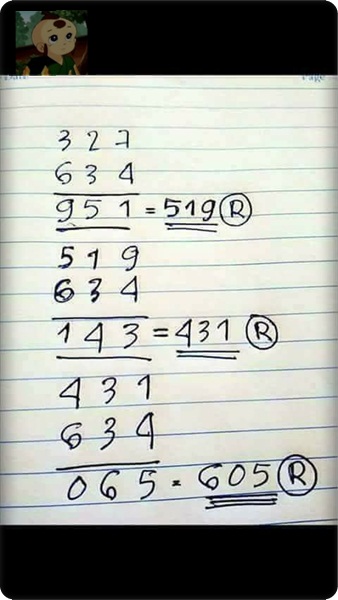 Page
3 2 7
6 3 4
9 5 1 = 519 R
5 1 9
6 3 4
1 4 3 = 431 R
4 3 1
6 3 4
0 6 5 = 605 R